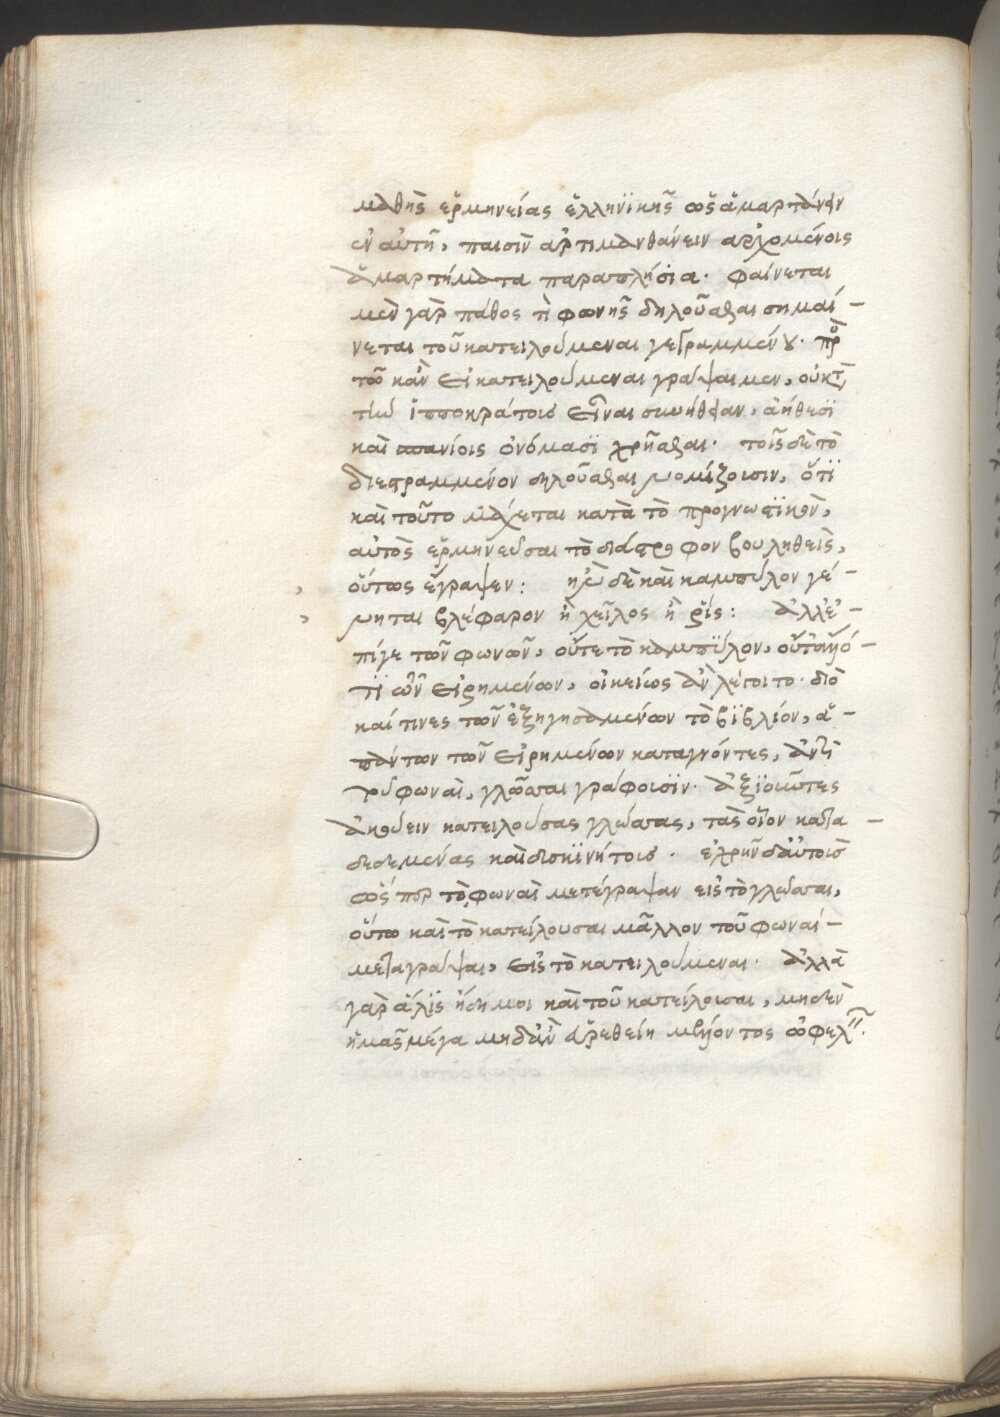 μαθὴς ἑρμηνείας ἑλληνικῆς ὡς ἁμαρτάνειν
ἐν αὐτῇ, παισὶν ἄρτι μανθάνειν ἀρχομένοις
ἁμαρτήματα παραπλήσια. φαίνεται
μὲν γὰρ πάθος τὶ φωνῆς δηλοῦσθαι σημαί-
νεται τοῦ κατειλούμεναι γεγραμμένου. πρὸ
τοῦ κἂν εἰ κατειλούμεναι γράψαιμεν, οὐκ
τῶν ἱπποκράτους εἶναι συνήθειαν, ἀήθεσι
καὶ σπανίοις ὀνόμασι χρῆσθαι. τοῖς δὲ τὸ
διεστραμμένον δηλοῦσθαι νομίζουσιν, ὅτι
καὶ τοῦτο μάχεται κατὰ τὸ προγνωστικὸν,
αὐτὸς ἑρμηνεῦσαι τὸ διάστροφον βουληθεὶς,
οὕτως ἔγραψεν: ἢν δὲ καὶ καμπύλον γέ-
νηται βλέφαρον ἢ χεῖλος ἢ ῥίς: ἀλλ' ἐ-
πί γε τῶν φωνῶν, οὔτε τὸ καμπύλον, οὔτ'
τι ὧν εἰρημένων, οἰκείως ἂν λέγοιτο. διὸ
καί τινες τῶν ἐξηγησαμένων τὸ βιβλίον, ἁ-
πάντων τῶν εἰρημένων καταγνόντες, ἀντὶ
τοῦ φωναὶ, γλῶσσαι γράφουσιν. ἀξιοῦντες
ἀκούειν κατειλούσας γλώσσας, τὰς οἷον κατα-
δεδεμένας καὶ δυσκινήτους. ἐχρῆν δ' αὐτοὺς
ὥσπερ τὸ φωναὶ μετέγραψαν εἰς τὸ γλῶσσαι,
οὕτω καὶ τὸ κατείλουσαι μᾶλλον τοῦ φωναί-
μεταγράψαι, εἰς τὸ κατειλούμεναι. ἀλλὰ
γὰρ ἅλις ἤδη μοι καὶ τοῦ κατείλουσαι, μηδὲν
ἡμᾶς μέγα μηδ' ἂν εὑρεθείη ὠφελ